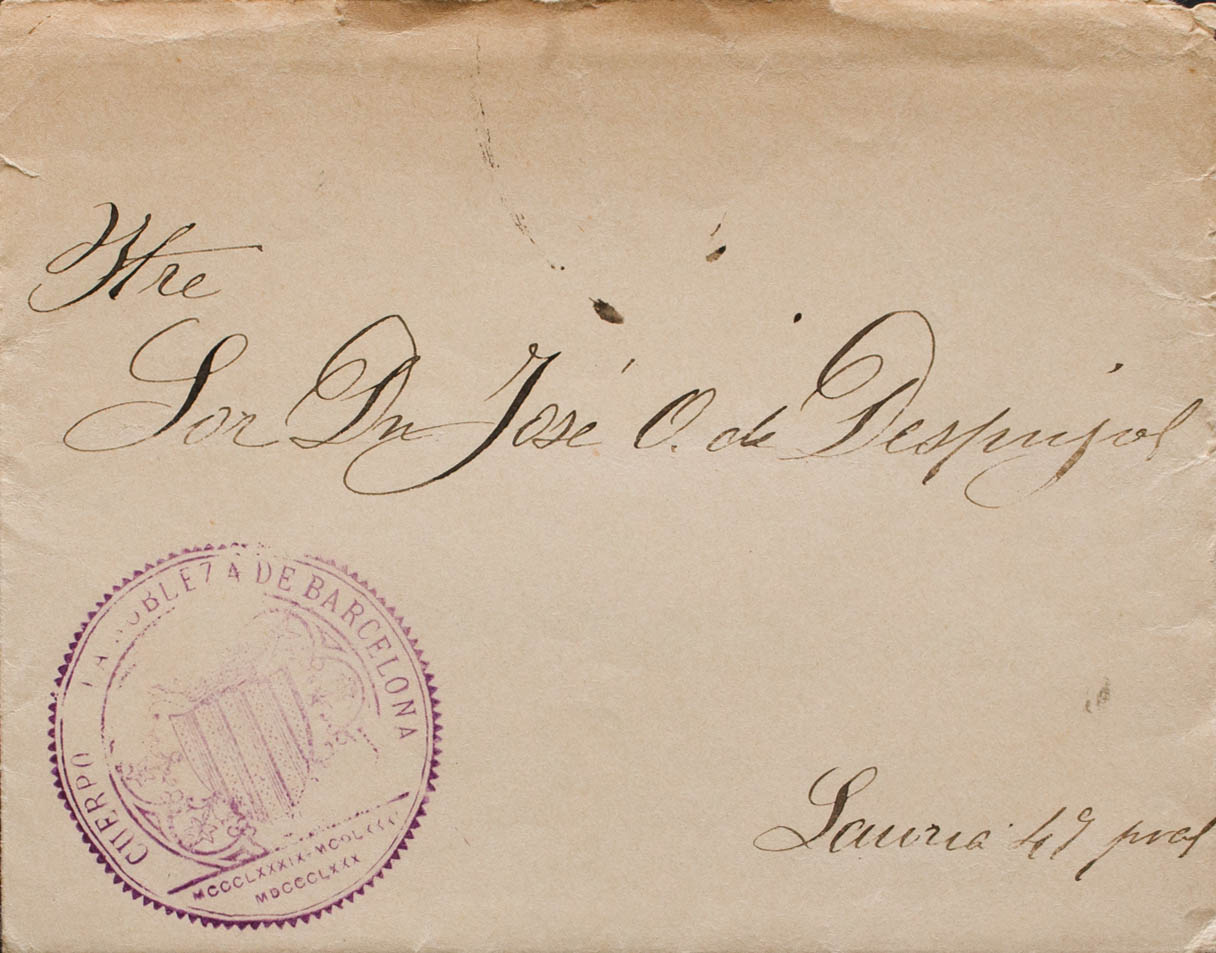 Iltre
Sor Dn José O. de Despujol
CUERPO LA NOBLEZA DE BARCELONA
MCCCLXXXIX-MCCCLXXX
MDCCCLXXX
Lauria 49 pral